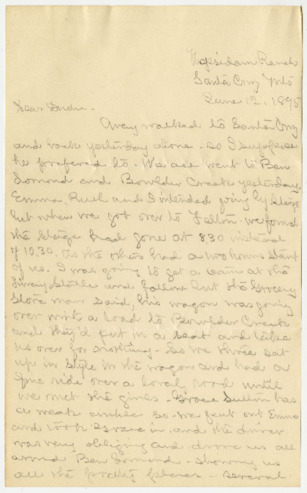 Ranch
Santa Cruz Mts
June 12, 1895
Dear
walked to Santa Cruz
and back yesterday alone - so I suppose
he preferred to. We all went to Ben
Lomond and Boulder Creek yesterday
Emma, Ruth and I intended going by stage
but when we got over to Felton we found
the stage had gone at 830 instead
of 10.30. As the others had a two hours start
of us. I was going to get a team at the
livery stable and follow but the grocery
store man said his wagon was going
over with a load to Boulder Creek
and they'd put in a seat and take
us over for nothing - So we three sat
up in style in the wagon and had a
fine ride over a good road until
we met the girls - Grace has
a weak ankle so we put out Emma
and took Grace in, and the driver
was very obliging and drove us all
around Ben Lomond - showing us
all the pretty places - Several